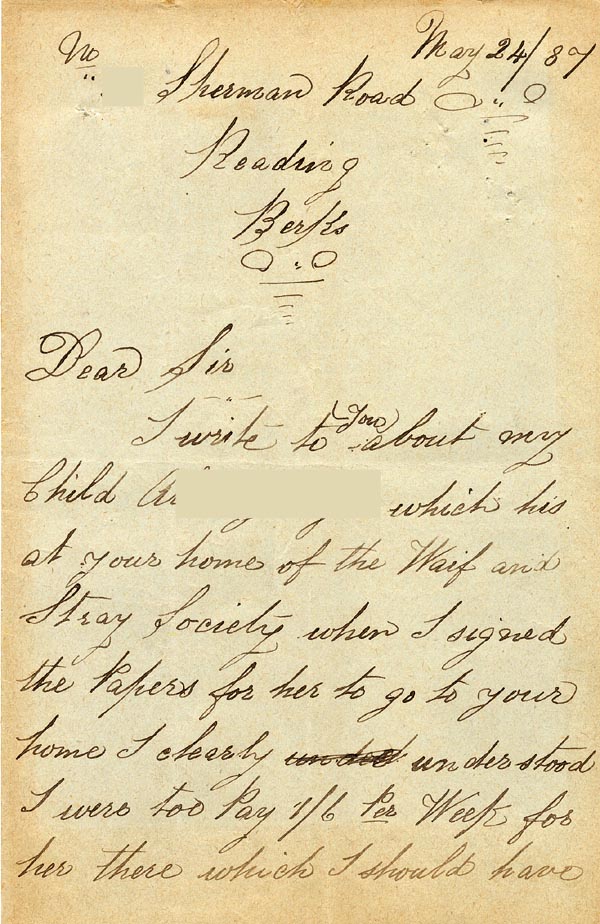 No May 24/87
Sherman Road
Reading
Berks
Dear Sir
I write to you about my
Child which his
at your home of the Waif and
Stray Society when I signed
the Papers for her to go to your
home I clearly understood
I were too Pay 1/6 Per Week for
her there which I should have